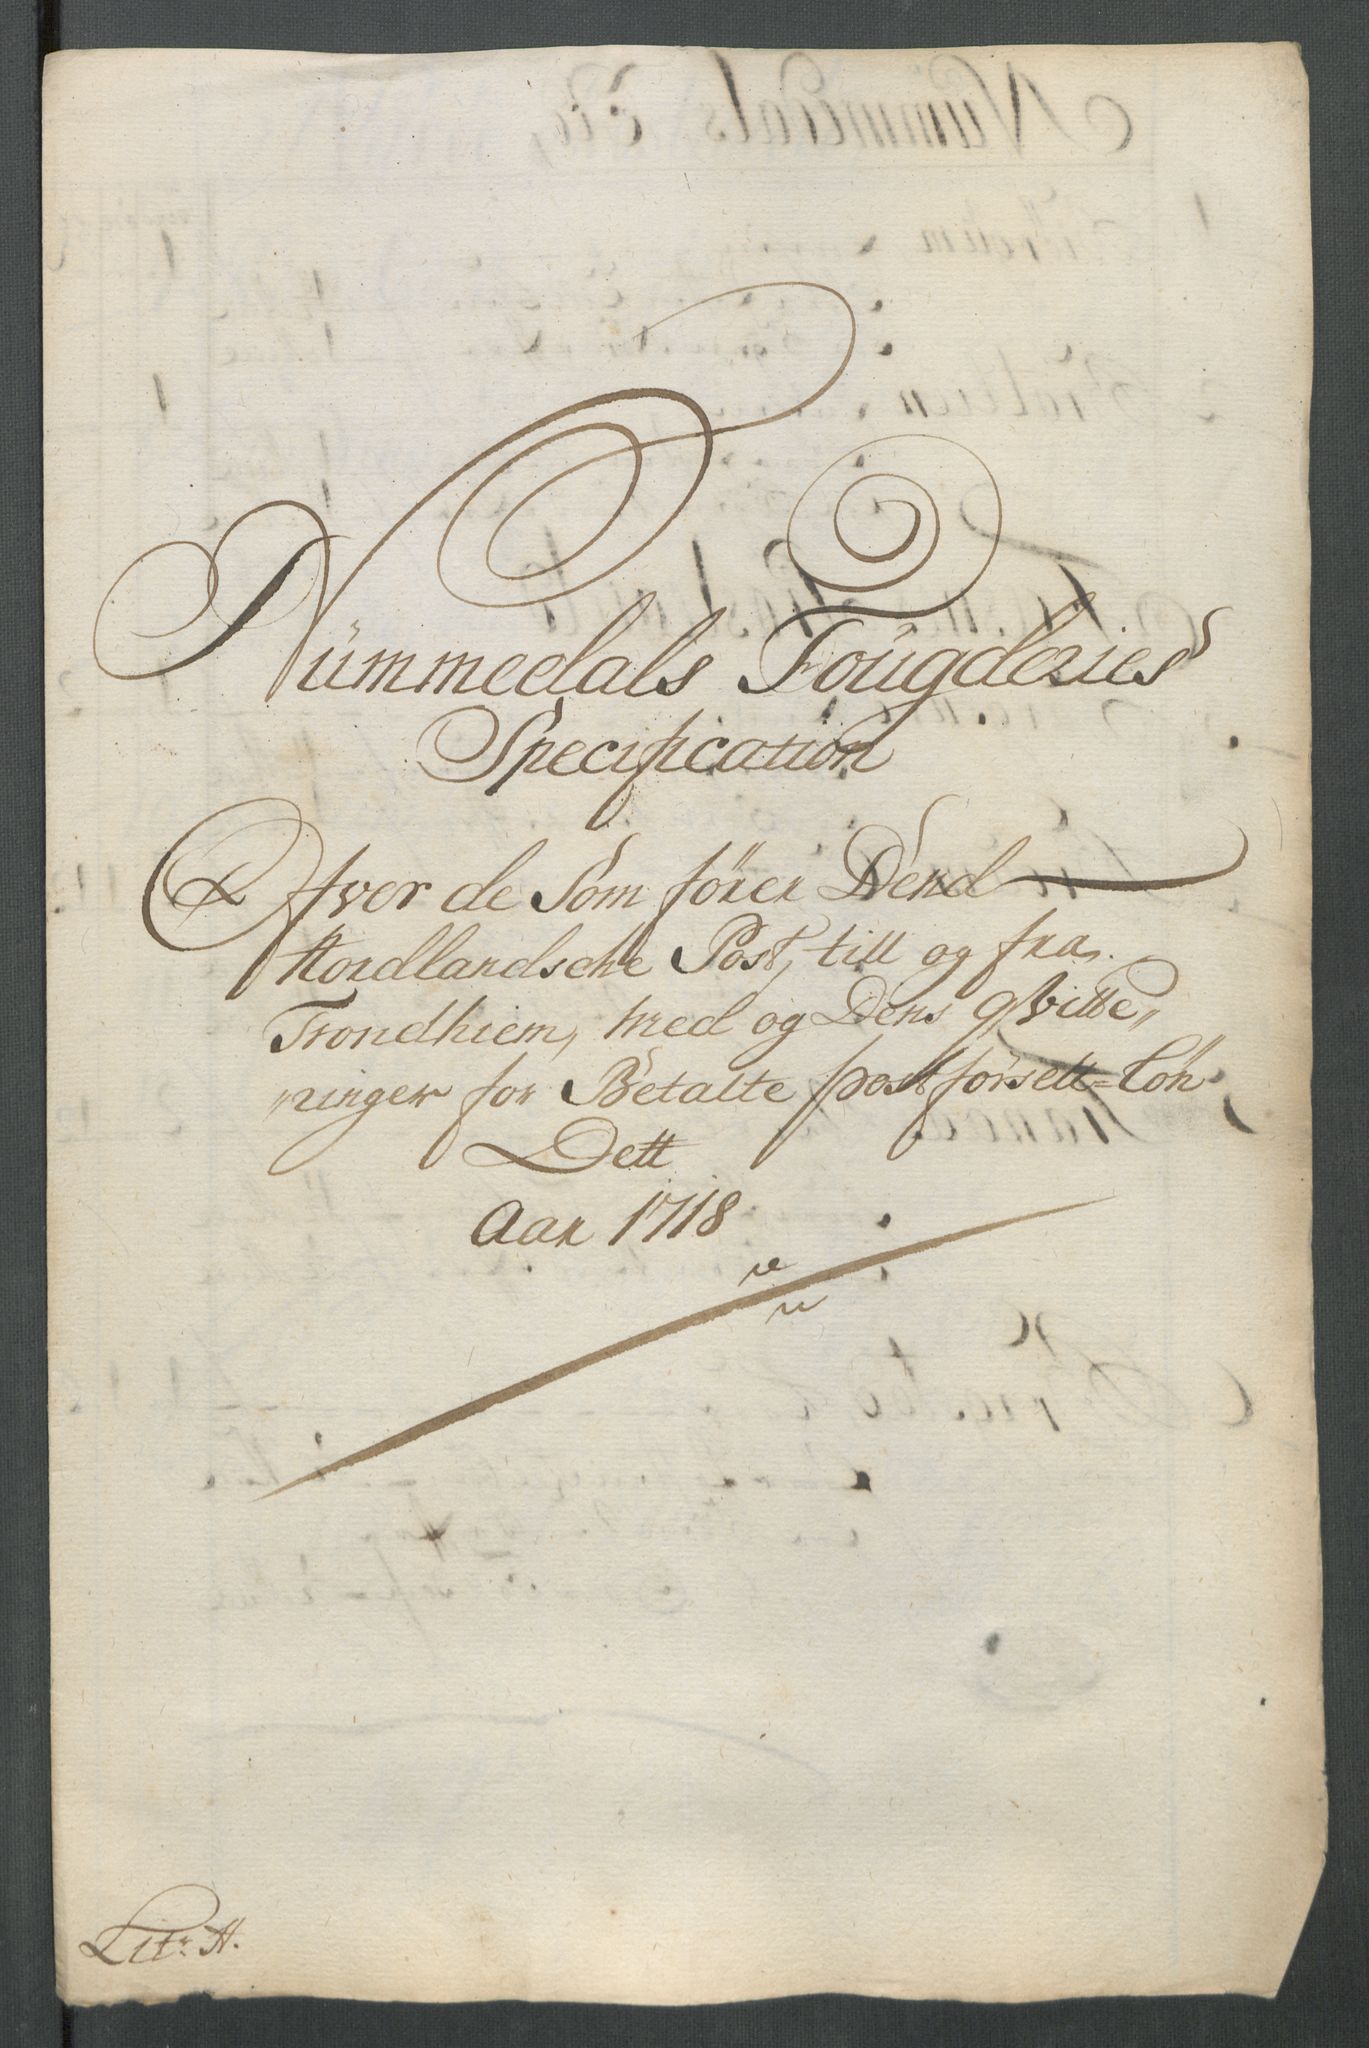 Nummedals Fougderies
Specification
Ofver de Som fører Dend
Nordlandsche Post, till og fra
Trondhiem, med og Dens qvitte„
„ringer for Betalte postførsell=Løn
Dett
Aar 1718
Litr: H.